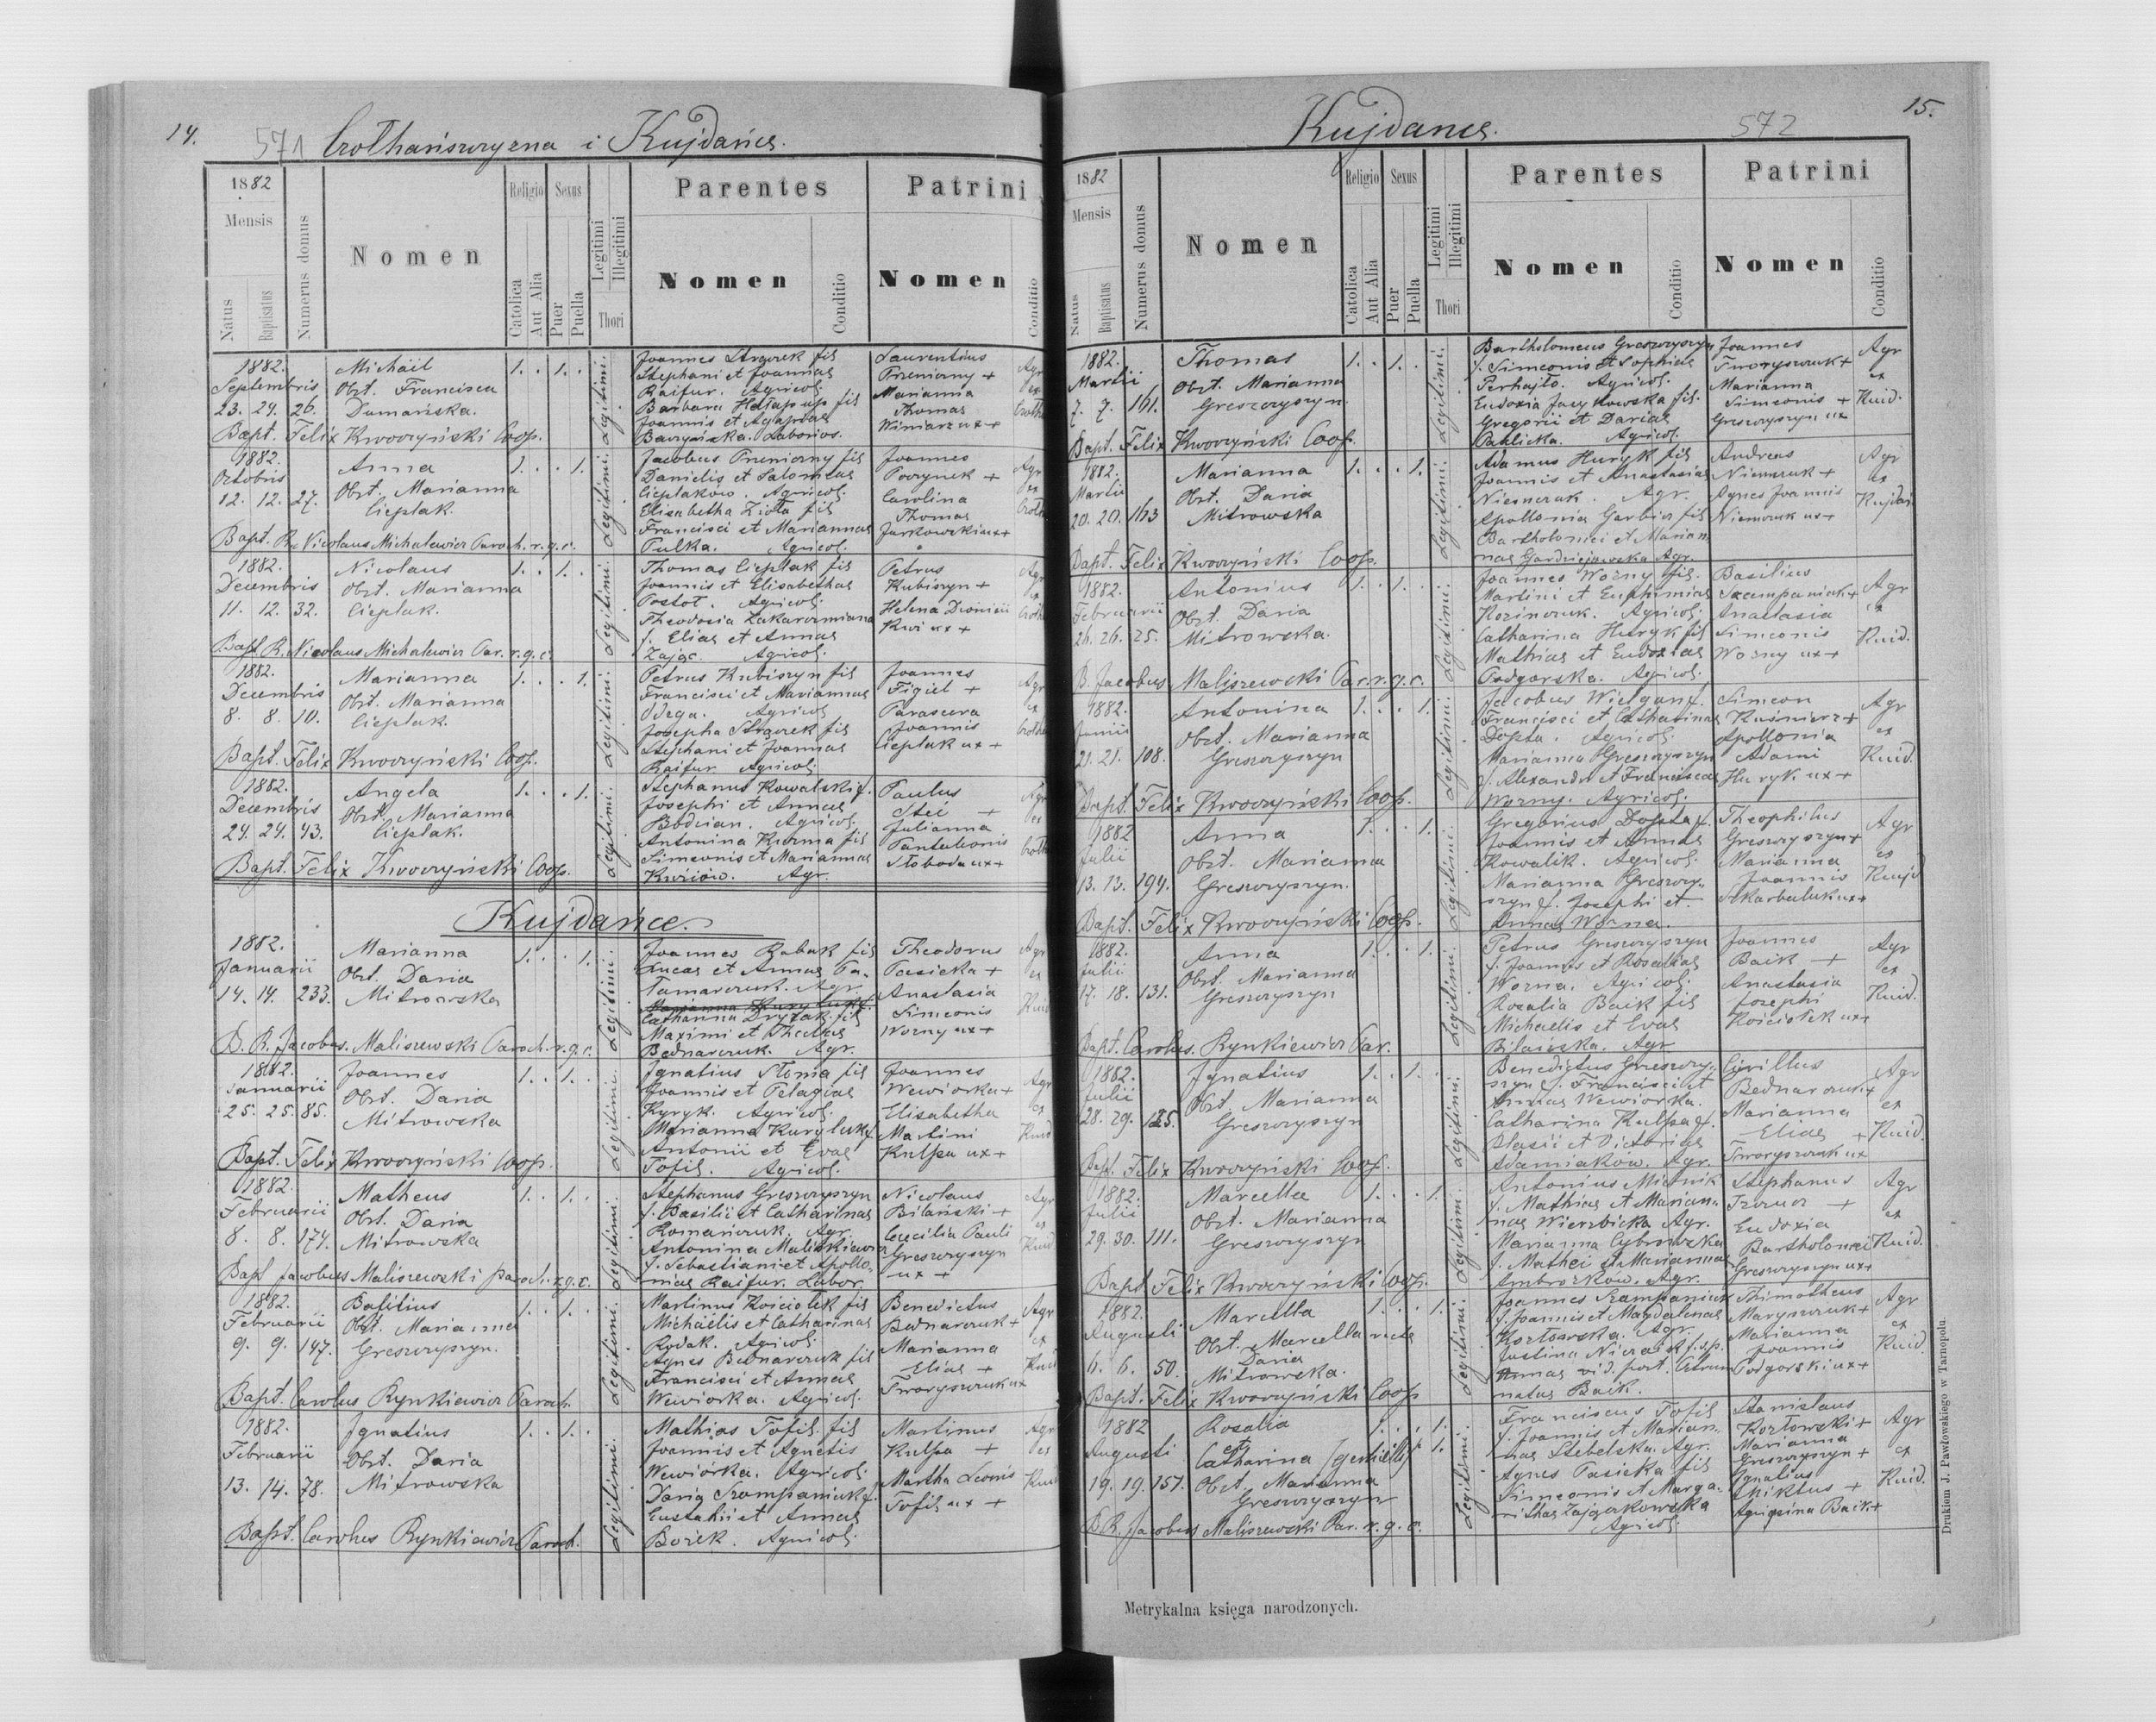 14.
571 Crothańszczyzna i Kujdańce.
1882
Mensis
Natus
Baptisatus
Numerus domus
Nomen
Religio
Catolica
Aut Alia
Sexus
Puer
Puella
Legitimi
Illegitimi
Thori
Parentes
Nomen
Conditio
Patrini
Nomen
Conditio
1882.
Septembris
23. 24. 26.
Michäil
Obst. Francisca
Damańska.
1. . 1. .
Legitimi.
Joannes fil
Stephani et Joannae
Raifur. Agricol.
Barbara fil
Joannis et
Laborios.
Laurentius
Przeniczny +
Marianna
Thomae
Winiarz ux +
Agr
ex
Bapt. Felix Kwoczyński Coop.
1882.
Octobris
12. 12. 27.
Anna
Obst. Marianna
Cieplak.
1. . . 1.
Legitimi.
Jacobus Przeniczny fil
Danielis et Salomeae
Cieplaków. Agricol.
Elisabetha Zioła fil
Francisci et Mariannae
Pulka. Agricol.
Joannes
Poczynek +
Carolina
Thomae
Jurkowski ux +
Agr
ex
Bapt. R. Nicolaus Michalewicz Paroch. r. g. c.
1882.
Decembris
11. 12. 32.
Nicolaus
Obst. Marianna
Cieplak.
1. . 1. .
Legitimi.
Thomas Cieplak fil
Joannis et Elisabethae
Postol. Agricol.
Theodosia
f. Eliae et Annae
Zając. Agricol.
Petrus
Kubiszyn +
Helena Dionisii
ux +
Agr
ex
Bapt. R. Nicolaus Michalewicz Par. r. g. c.
1882.
Decembris
8. 8. 10.
Marianna
Obst. Marianna
Cieplak.
1. . . 1.
Legitimi.
Petrus Kubiszyn fil
Francisci et Mariannae
Agricol
Josepha fil
Stephani et Joannae
Raifur Agricol.
Joannes
Figiel +
Parascera
Joannis
Cieplak ux +
Agr
ex
Bapt. Felix Kwoczyński Coop.
1882.
Decembris
24. 24. 43.
Angela
Obst. Marianna
Cieplak.
1. . . 1.
Legitimi.
Stephanus Kowalski f.
Josephi et Annae
Bodzian. Agricol.
Antonina fil
Simeonis et Mariannae
Agr.
Paulus
+
Julianna
Pantaleonis
Słoboda ux +
Agr
ex
Bapt. Felix Kwoczyński Coop.
Kujdańce.
1882.
Januarii
14. 14. 233.
Marianna
Obst. Daria
Mitrowska
1. . . 1.
Legitimi.
Joannes Rabak fil
Lucae et Annae Ta-
tamarczuk. Agr.
Marianna Kuryluk f.
Catharina fil
Maximi et Theclae
Bednarczuk. Agr.
Theodorus
Pasieka +
Anastasia
Simeonis
Worny ux +
Agr
ex
Kuid
B. R. Jacobus. Maliszewski Paroch. r. g. c.
1882.
Januarii
25. 25. 85.
Joannes
Obst. Daria
Mitrowska
1. . 1. .
Legitimi.
Ignatius Słonia fil
Joannis et Pelagiae
Kyryk. Agricol.
Marianna Kuryluk f.
Antonii et Evae
Tofil. Agricol.
Joannes
Wewiorka +
Elisabetha
Martini
Kulpa ux +
Agr
ex
Kuid
Bapt. Felix Kwoczyński Coop.
1882.
Februarii
8. 8. 174.
Matheus
Obst. Daria
Mitrowska
1. . 1. .
Legitimi.
Stephanus Greszczyszyn
f. Basilii et Catharinae
Romańczuk. Agr.
Antonina Maliszkiewicz
f. Sebastiani et Apollo-
niae Raifur. Labor.
Nicolaus
Bilański +
Cecilia Pauli
Greszczyszyn
ux +
Agr
ex
Kuid
Bapt Jacobus Maliszewski Paroch. r. g. c.
1882.
Februarii
9. 9. 147.
Basilius
Obst. Marianna
Greszczyszyn.
1. . 1. .
Legitimi.
Martinus Kościołek fil
Michaelis et Catharinae
Rodak. Agricol.
Agnes Bednarczuk fil
Francisci et Annae
Wewiorka. Agricol.
Benedictus
Bednarczuk +
Marianna
Eliae +
Tworyszczuk ux
Agr
ex
Kuid
Bapt. Carolus Rynkiewicz Paroch.
1882.
Februarii
13. 14. 78.
Ignatius
Obst. Daria
Mitrowska
1. . 1. .
Legitimi.
Mathias Tofil. fil
Joannis et Agnetis
Wewiórka. Agricol.
Daria Szampaniuk f.
Eustahii et Annae
Borek. Agricol.
Martinus
Kulpa +
Martha Leonis
Tofil ux +
Agr
ex
Kuid
Bapt. Carolus Rynkiewicz Paroch.
15.
Kujdańce. 572
1882
Mensis
Natus
Baptisatus
Numerus domus
Nomen
Religio
Catolica
Aut Alia
Sexus
Puer
Puella
Legitimi
Illegitimi
Thori
Parentes
Nomen
Conditio
Patrini
Nomen
Conditio
1882.
Martii
7. 7. 161.
Thomas
Obst. Marianna
Greszczyszyn.
1. . 1. .
Legitimi.
Bartholomeus Greszczyszyn
f. Simeonis et Sophiae
Perhajto. Agricol.
Eudoxia fil.
Gregorii et Dariae
Pawlicka. Agricol.
Joannes
Tworyszczuk +
Marianna
Simeonis +
Greszczyszyn ux
Agr
ex
Kuid.
Bapt. Felix Kwoczyński Coop.
1882.
Martii
20. 20. 163
Marianna
Obst. Daria
Mitrowska
1. . . 1.
Legitimi.
Adamus Huryk fil
Joannis et Anastasiae
Niemczuk. Agr.
Apollonia fil
Bartholomei et Marian-
nae Agr.
Andreas
Niemczuk +
Agnes Joannis
Niemczuk ux +
Agr
ex
Kujdań
Bapt. Felix Kwoczyński Coop.
1882.
Februarii
26. 26. 25.
Antonius
Obst. Daria
Mitrowska.
1. . 1. .
Legitimi.
Joannes Worny fil.
Martini et Euphimiae
Kozinczuk. Agricol.
Catharina Huryk fil
Mathiae et Eudoxiae
Podgorska. Agricol.
Basilius
Szampaniuk +
Anastasia
Simeonis
Worny ux +
Agr
ex
Kuid.
B. Jacobus Maliszewski Par. r. g. c.
1882.
Junii
21. 21. 108.
Antonina
Obst. Marianna
Greszczyszyn
1. . . 1.
Legitimi.
Jacobus Wielgan f.
Francisci et Catharinae
Dopta. Agricol.
Marianna Greszczyszyn
f. Alexandri et Franciscae
Worny. Agricol.
Simeon
Kuśnierz +
Apollonia
Adami
Huryk ux +
Agr
ex
Kuid.
Bapt. Felix Kwoczyński Coop.
1882
Julii
13. 13. 194.
Anna
Obst. Marianna
Greszczyszyn.
1. . . 1.
Legitimi.
Gregorius Dopta f.
Joannis et Annae
Kowalik. Agricol.
Marianna Greszczy-
szyn f. Josephi et
Annae Worna.
Theophilus
Greszczyszyn +
Marianna
Joannis
Skarbuluk ux +
Agr
ex
Kuijd
Bapt. Felix Kwoczyński Coop.
1882.
Julii
17. 18. 131.
Anna
Obst. Marianna
Greszczyszyn
1. . . 1.
Legitimi.
Petrus Greszczyszyn
f. Joannis et Rosaliae
Worna. Agricol.
Rosalia Baik fil
Michaelis et Evae
Bilańska. Agr
Joannes
Baik +
Anastasia
Josephi
Kościołek ux +
Agr
ex
Kuid.
Bapt. Carolus. Rynkiewicz Par.
1882.
Julii
28. 29. 125.
Ignatius
Obst. Marianna
Greszczyszyn
1. . 1. .
Legitimi.
Benedictus Greszczy-
szyn f. Francisci et
Annae Wewiorka.
Catharina Kulpa f.
Blasii et Victoriae
Adamiaków. Agr.
Cyrillus
Bednarczuk +
Marianna
Eliae +
Tworyszczuk ux
Agr
ex
Kuid.
Bapt. Felix Kwoczyński Coop.
1882.
Julii
29. 30. 111.
Marcella
Obst. Marianna
Greszczyszyn
1. . . 1.
Legitimi.
Antonius Mietnik
f. Mathiae et Marian-
nae Wierzbicka Agr.
Marianna Cybrowska
f. Mathei et Mariannae
Ambrozków. Agr.
Stephanus
+
Eudoxia
Bartholomei
Greszczyszyn ux +
Agr
ex
Kuid.
Bapt. Felix Kwoczyński Coop.
1882.
Augusti
6. 6. 50.
Marcella
Obst. Marcella recte
Daria
Mitrowska.
1. . . 1.
Legitimi.
Joannes Szampaniuk
f. Joannis et Magdalenae
Kozłowska. Agr.
Justina
Annae vid. post.
natus Baik.
Thimotheus
Maryszczuk +
Marianna
Joannis
Podgorski ux +
Agr
ex
Kuid.
Bapt. Felix Kwoczyński Coop
1882
Augusti
19. 19. 157.
Rosalia
et
Catharina (gemellae)
Obst. Marianna
Greszczyszyn
1. . . 1.
1.
Legitimi.
Franciscus Tofil
f. Joannis et Marian-
nae Stebelska. Agr.
Agnes Pasieka fil
Simeonis et Marga-
rithae Zajączkowska
Agricol.
Stanislaus
Kozłowski +
Marianna
Greszczyszyn +
Ignatius
+
Baik +
Agr
ex
Kuid.
B. R. Jacobus Maliszewski Par. r. g. c.
Metrykalna księga narodzonych.
Drukiem J. Pawłowskiego w Tarnopolu.